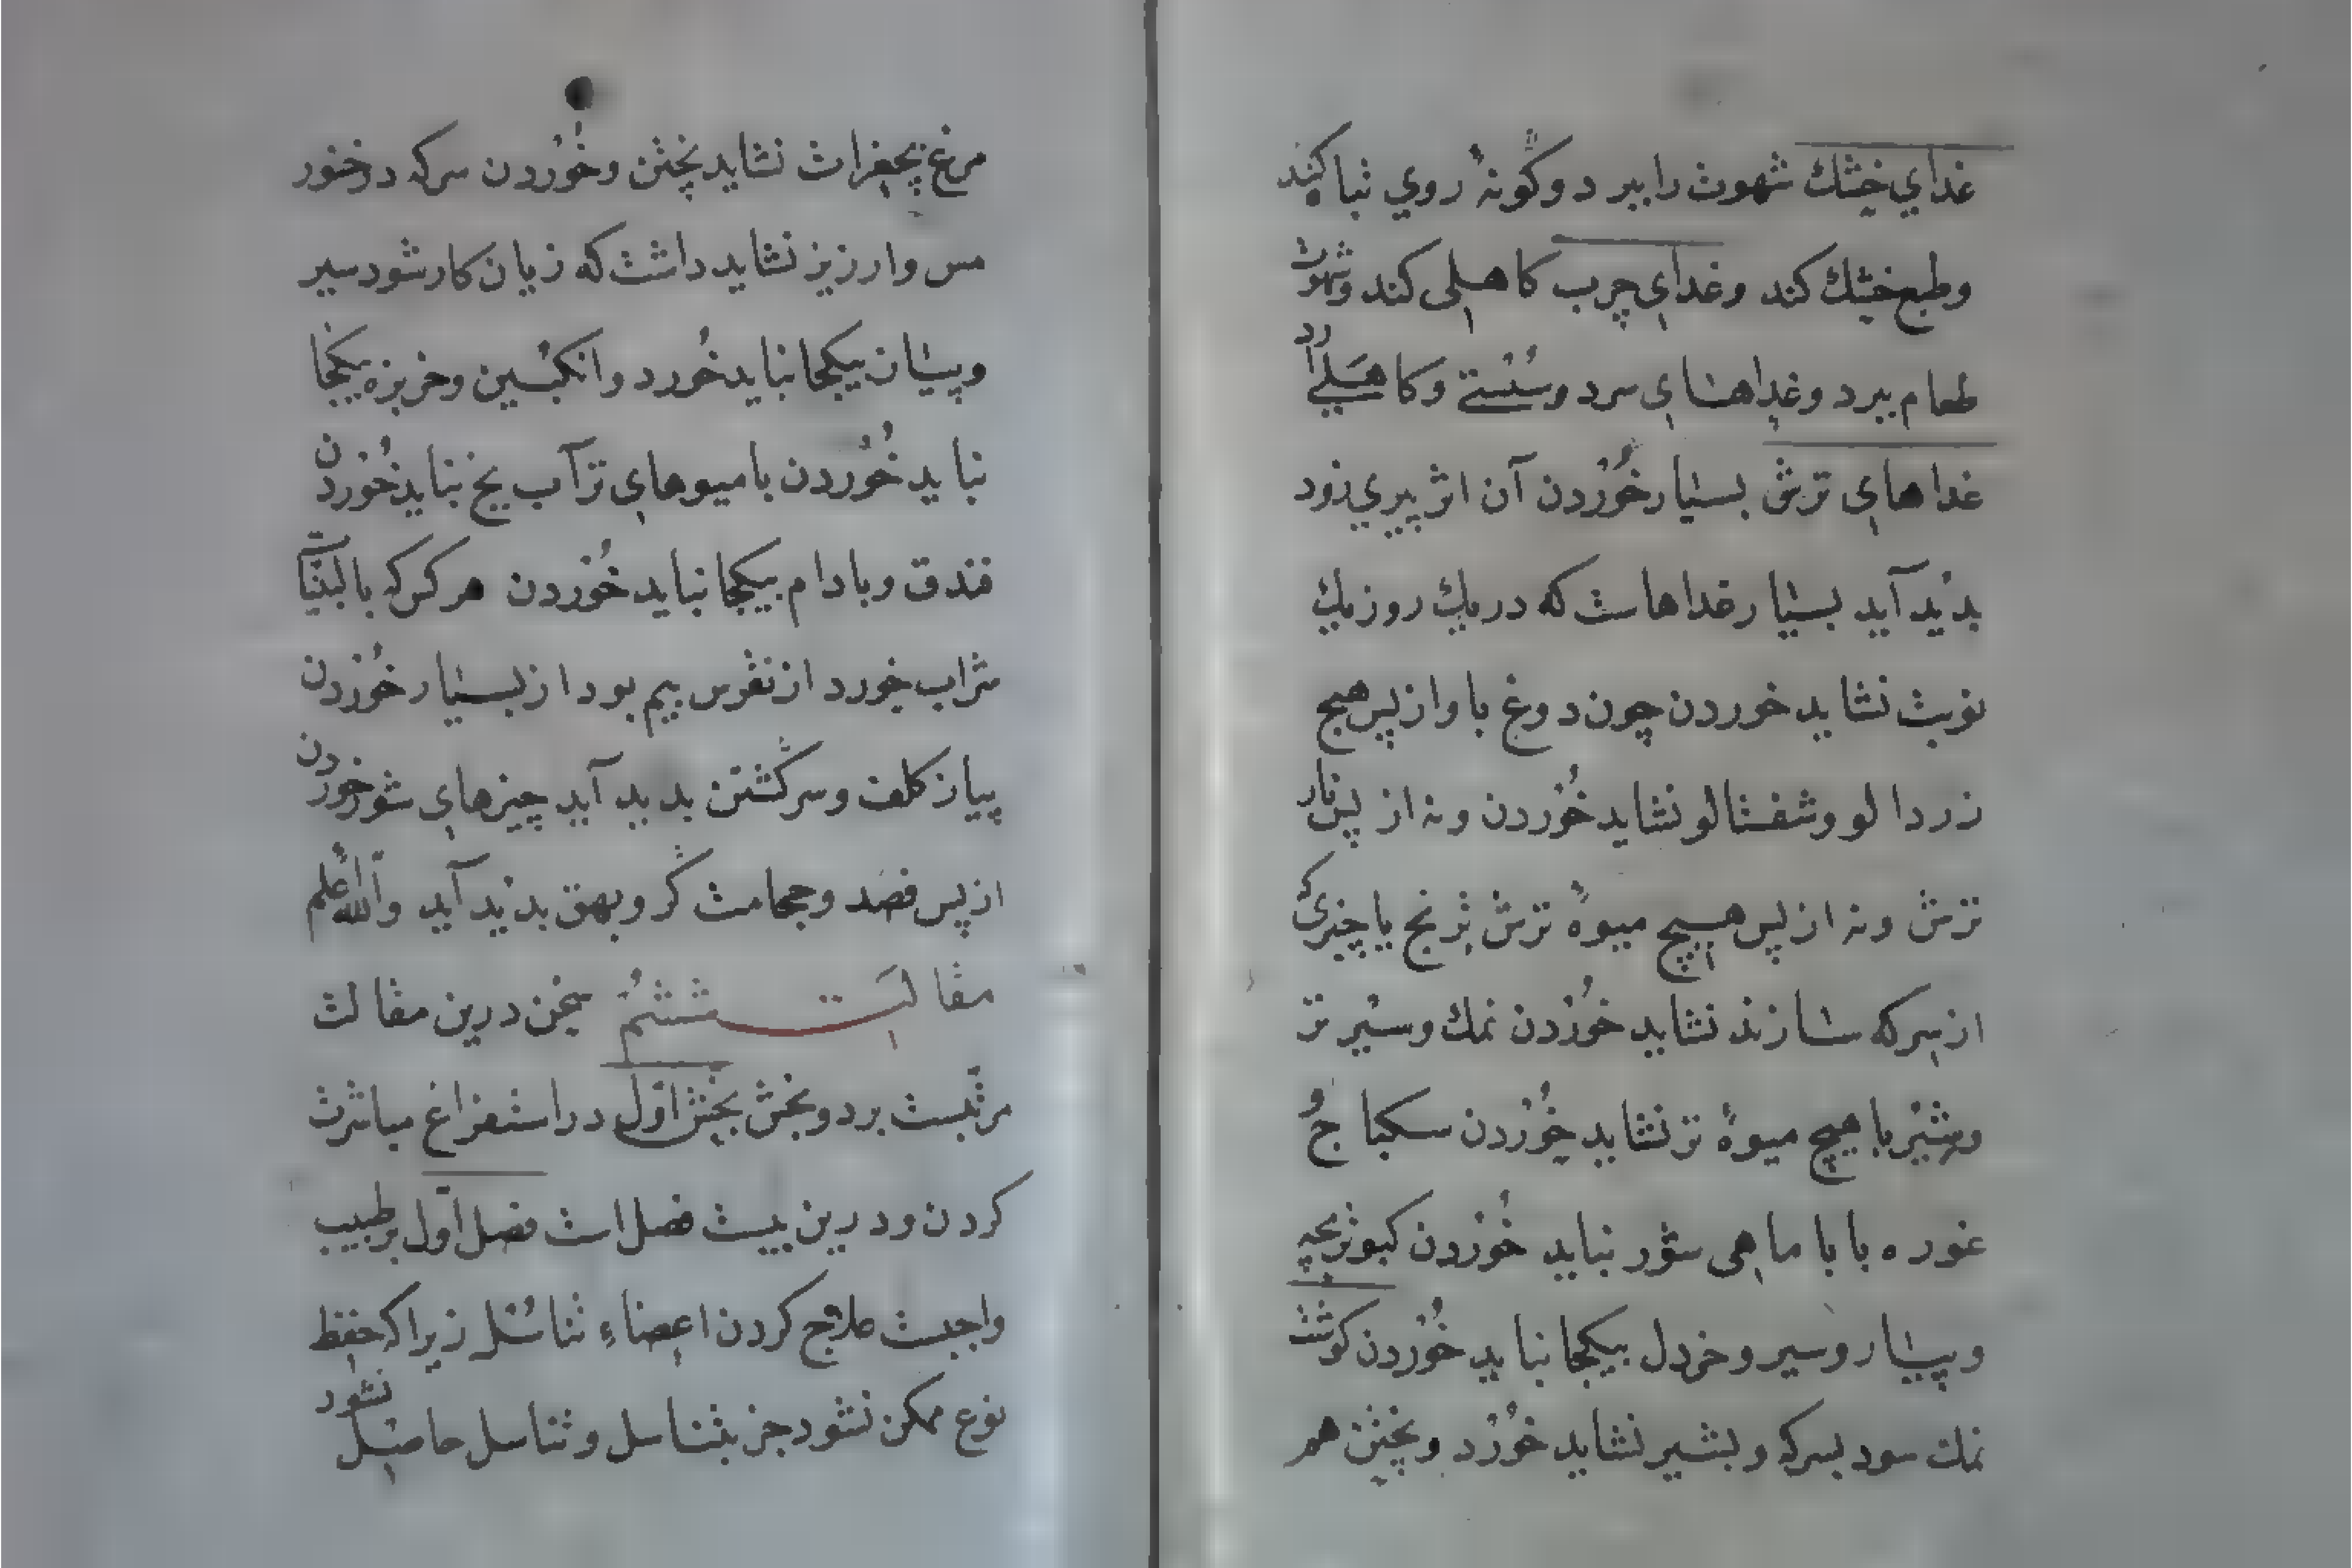 غداي خشك شهوت را ببرد و گونهٔ روي تباكند
وطبع خشك كند وغداي چرب كاهلى كند وشهوت
طعام ببرد وغداهاي سرد وسُستے وكاهَلے آرد
غداهاي ترش بسيار خُوردن آن اثر پيري زود
بديد آيد بسيار غداهاست كه دريك روز بيك
نوبت نشايد خوردن چون دوغ با واز پس هيج
زردالو وشفتالو نشايد خُوردن ونه از پس نار
ترش ونه از پس هيچ ميوهٔ ترش ترنج يا چيزي ك
از سركه سازند نشايد خُوردن نمك وسير تر
وشير با هيچ ميوهٔ تر نشايد خُوردن سكبا جُو
غوره با با ماهى شور نبايد خُوردن كبوتر بچه
وپيار وسير وخردل بيكجا نبايد خُوردن گوشت
نمك سود بسركه وبشير نشايد خُورد وپختن هر
مرغ بچغرات نشايد پختن وخُوردن سركه در خنور
مس وارزيز نشايد داشت كه زيان كار شود سير
وپياز بيكجا نبايد خُورد وانگبين وخربزه بيكجا
نبايد خُوردن باميوهاي تر آب يخ نبايد خُوردن
فندق وبادام بيكجا نبايد خُوردن هر كس كه بالبنيّات
شراب خورد از نقرس بيم بود از بسيار خُوردن
پياز كلف وسرگشتن بديد آيد چيزهاي شور خوردن
از پس فصد وحجامت گر وبهق بديد آيد والله اَعلم
مقالَت ششُم سخن درين مقالت
مرتّبست بر دو بخش بخش اوّل در استفراغ مباشرت
كردن ودرين بيست فصل است فصل اوّل بر طبيب
واجبست علاج كردن اعضاءِ تناسُل زيراكه حفظ
نوع ممكن نشود جز بتناسل وتناسل حاصل نشود